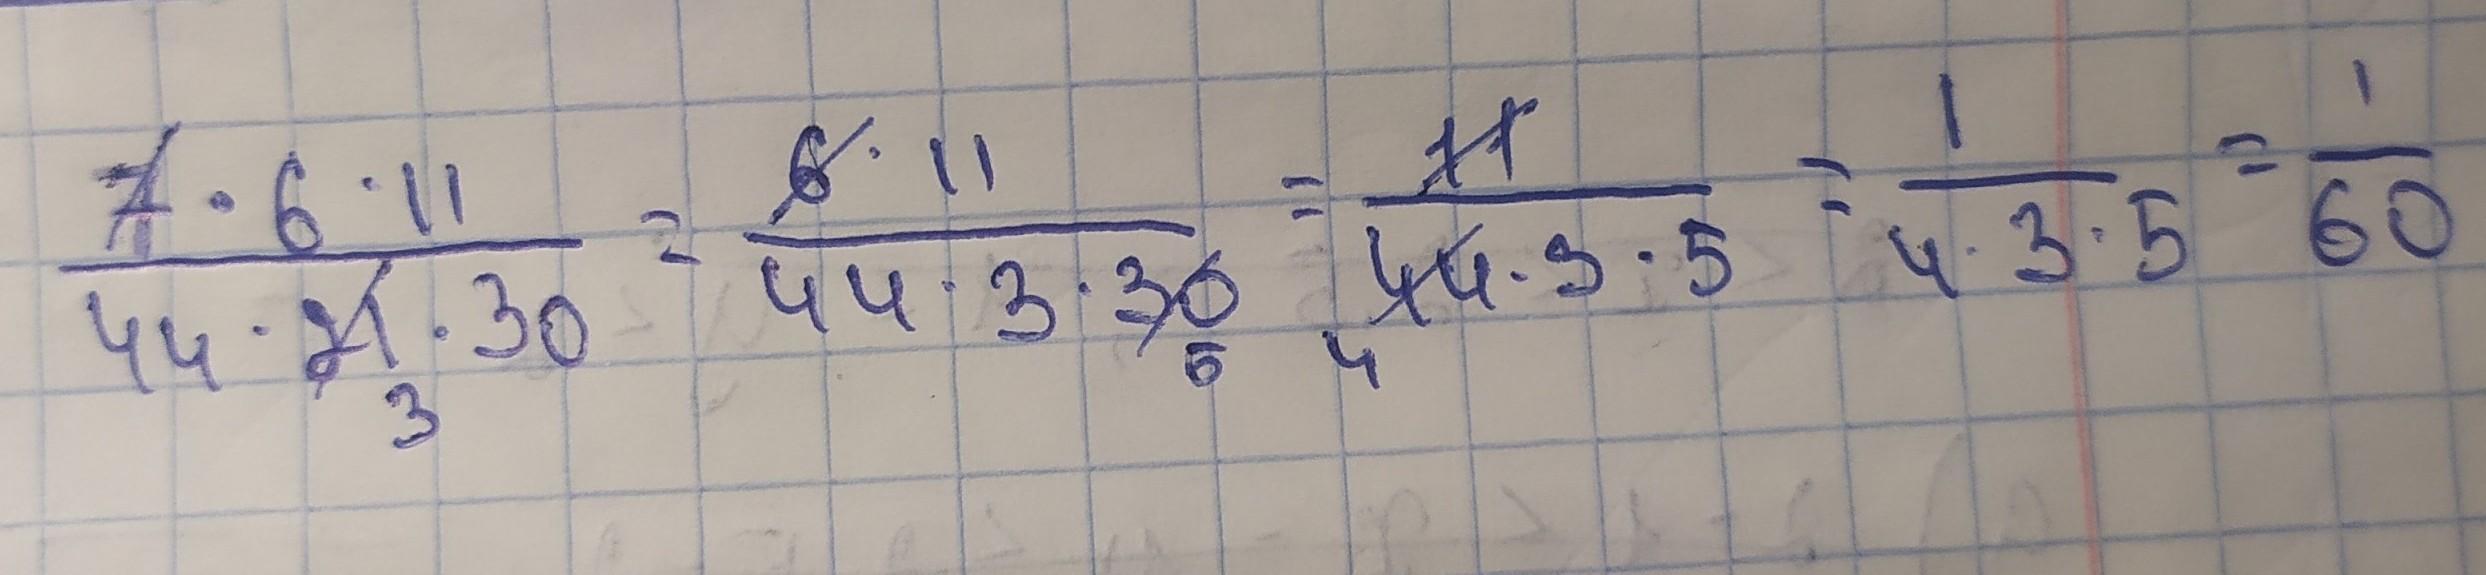 7 · 6 · 11 / 44 · 21 · 30 = 6 · 11 / 44 · 3 · 30 = 11 / 44 · 3 · 5 = 1 / 4 · 3 · 5 = 1 / 60
3 5 4